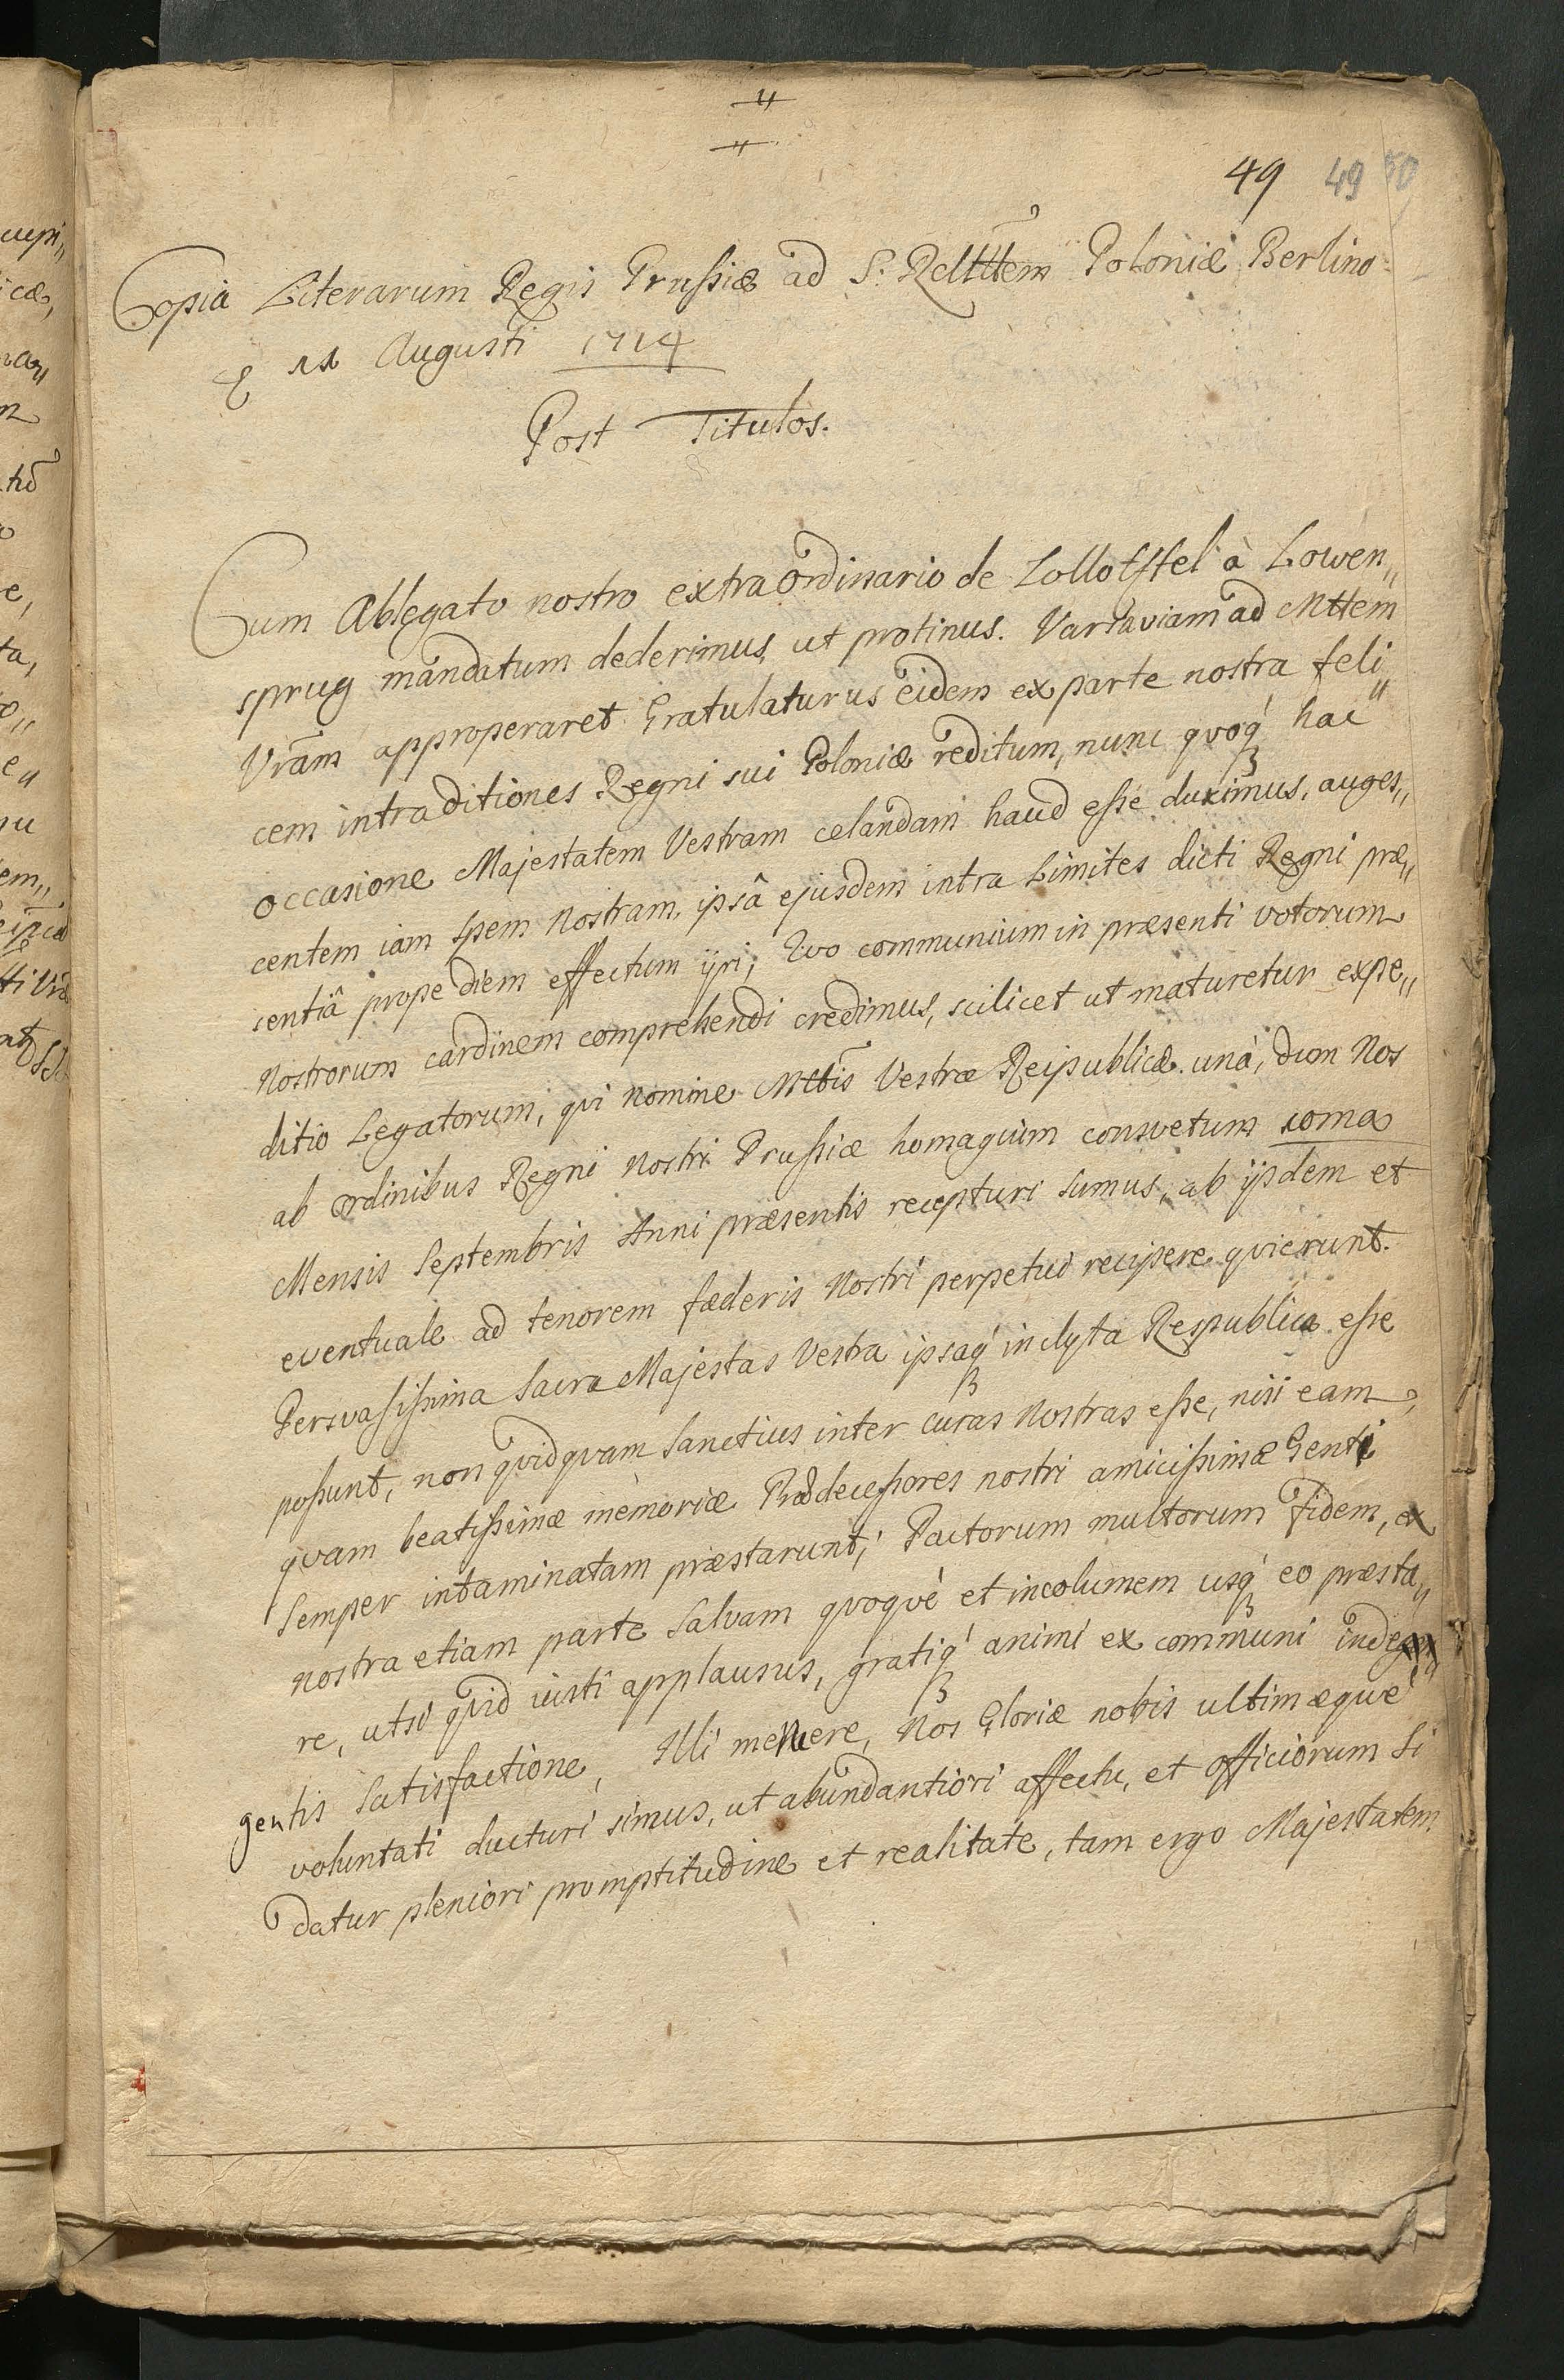 49 49 50
Copia Literarum Regis Prussiæ ad S. Rclttem Poloniæ Berlino
E 11 Augusti 1714
Post Titulos.
Cum Ablegato nostro extraordinario de Lollotstel à Lowen„
sprug mandatum dederimus, ut protinus. Varsaviam ad Mttem
Vram approperaret Gratulaturus eidem ex parte nostra feli„
cem intra ditiones Regni sui Poloniæ reditum, nunc qvoq hac
occasione Majestatem Vestram celandam haud esse duximus, auges„
centem iam spem Nostram, ipsâ ejusdem intra Limites dicti Regni præ„
sentiâ prope diem effectum iri; Qvo communium in præsenti votorum
Nostrorum cardinem comprehendi credimus, scilicet ut maturetur expe„
ditio Legatorum, qvi Nomine Mttis Vestræ Reipublicæ unà, dum Nos
ab Ordinibus Regni Nostri Prussiæ homagium consvetum 10ma
Mensis Septembris Anni præsentis recepturi sumus, ab ijsdem et
eventuale ad tenorem fæderis Nostri perpetui recipere qvierunt.
Persvasissima Sacra Majestas Vestra ipsaq inclyta Respublica esse
possunt, non qvidqvam Sanctius inter curas Nostras esse, nisi eam,
qvam beatissimæ memoriæ Prædecessores nostri amicissimæ Genti
Semper intaminatam præstarunt, Pactorum multorum fidem, ex
nostra etiam parte Salvam qvoqvè et incolumem usq eo præsta„
re, utsi qvid iusti applausus, gratiq animi ex communi inde
gentis Satisfactione, Illi menere, Nos Gloriæ nobis ultimæque
voluntati ducturi simus, ut abundantiori affectu, et officiorum si
datur pleniori promptitudine et realitate, tam ergo Majestatem